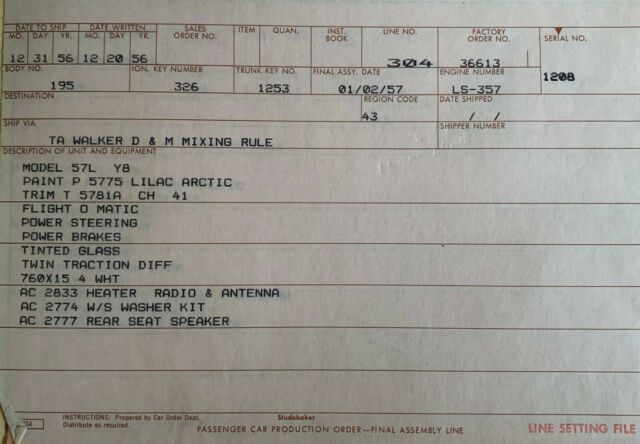 DATE TO SHIP DATE WRITTEN SALES ORDER NO. ITEM QUAN. INST. BOOK LINE NO. FACTORY ORDER NO. SERIAL NO.
MO. DAY YR. MO. DAY YR.
12 31 56 12 20 56 304 36613 1208
BODY NO. IGN. KEY NUMBER TRUNK KEY NO. FINAL ASSY. DATE ENGINE NUMBER
195 326 1253 01/02/57 LS-357
DESTINATION REGION CODE DATE SHIPPED
43 / /
SHIP VIA SHIPPER NUMBER
TA WALKER D & M MIXING RULE
DESCRIPTION OF UNIT AND EQUIPMENT
MODEL 57L Y8
PAINT P 5775 LILAC ARCTIC
TRIM T 5781A CH 41
FLIGHT O MATIC
POWER STEERING
POWER BRAKES
TINTED GLASS
TWIN TRACTION DIFF
760X15 4 WHT
AC 2833 HEATER RADIO & ANTENNA
AC 2774 W/S WASHER KIT
AC 2777 REAR SEAT SPEAKER
INSTRUCTIONS: Prepared by Car Order Dept. Studebaker
Distribute as required.
PASSENGER CAR PRODUCTION ORDER—FINAL ASSEMBLY LINE LINE SETTING FILE